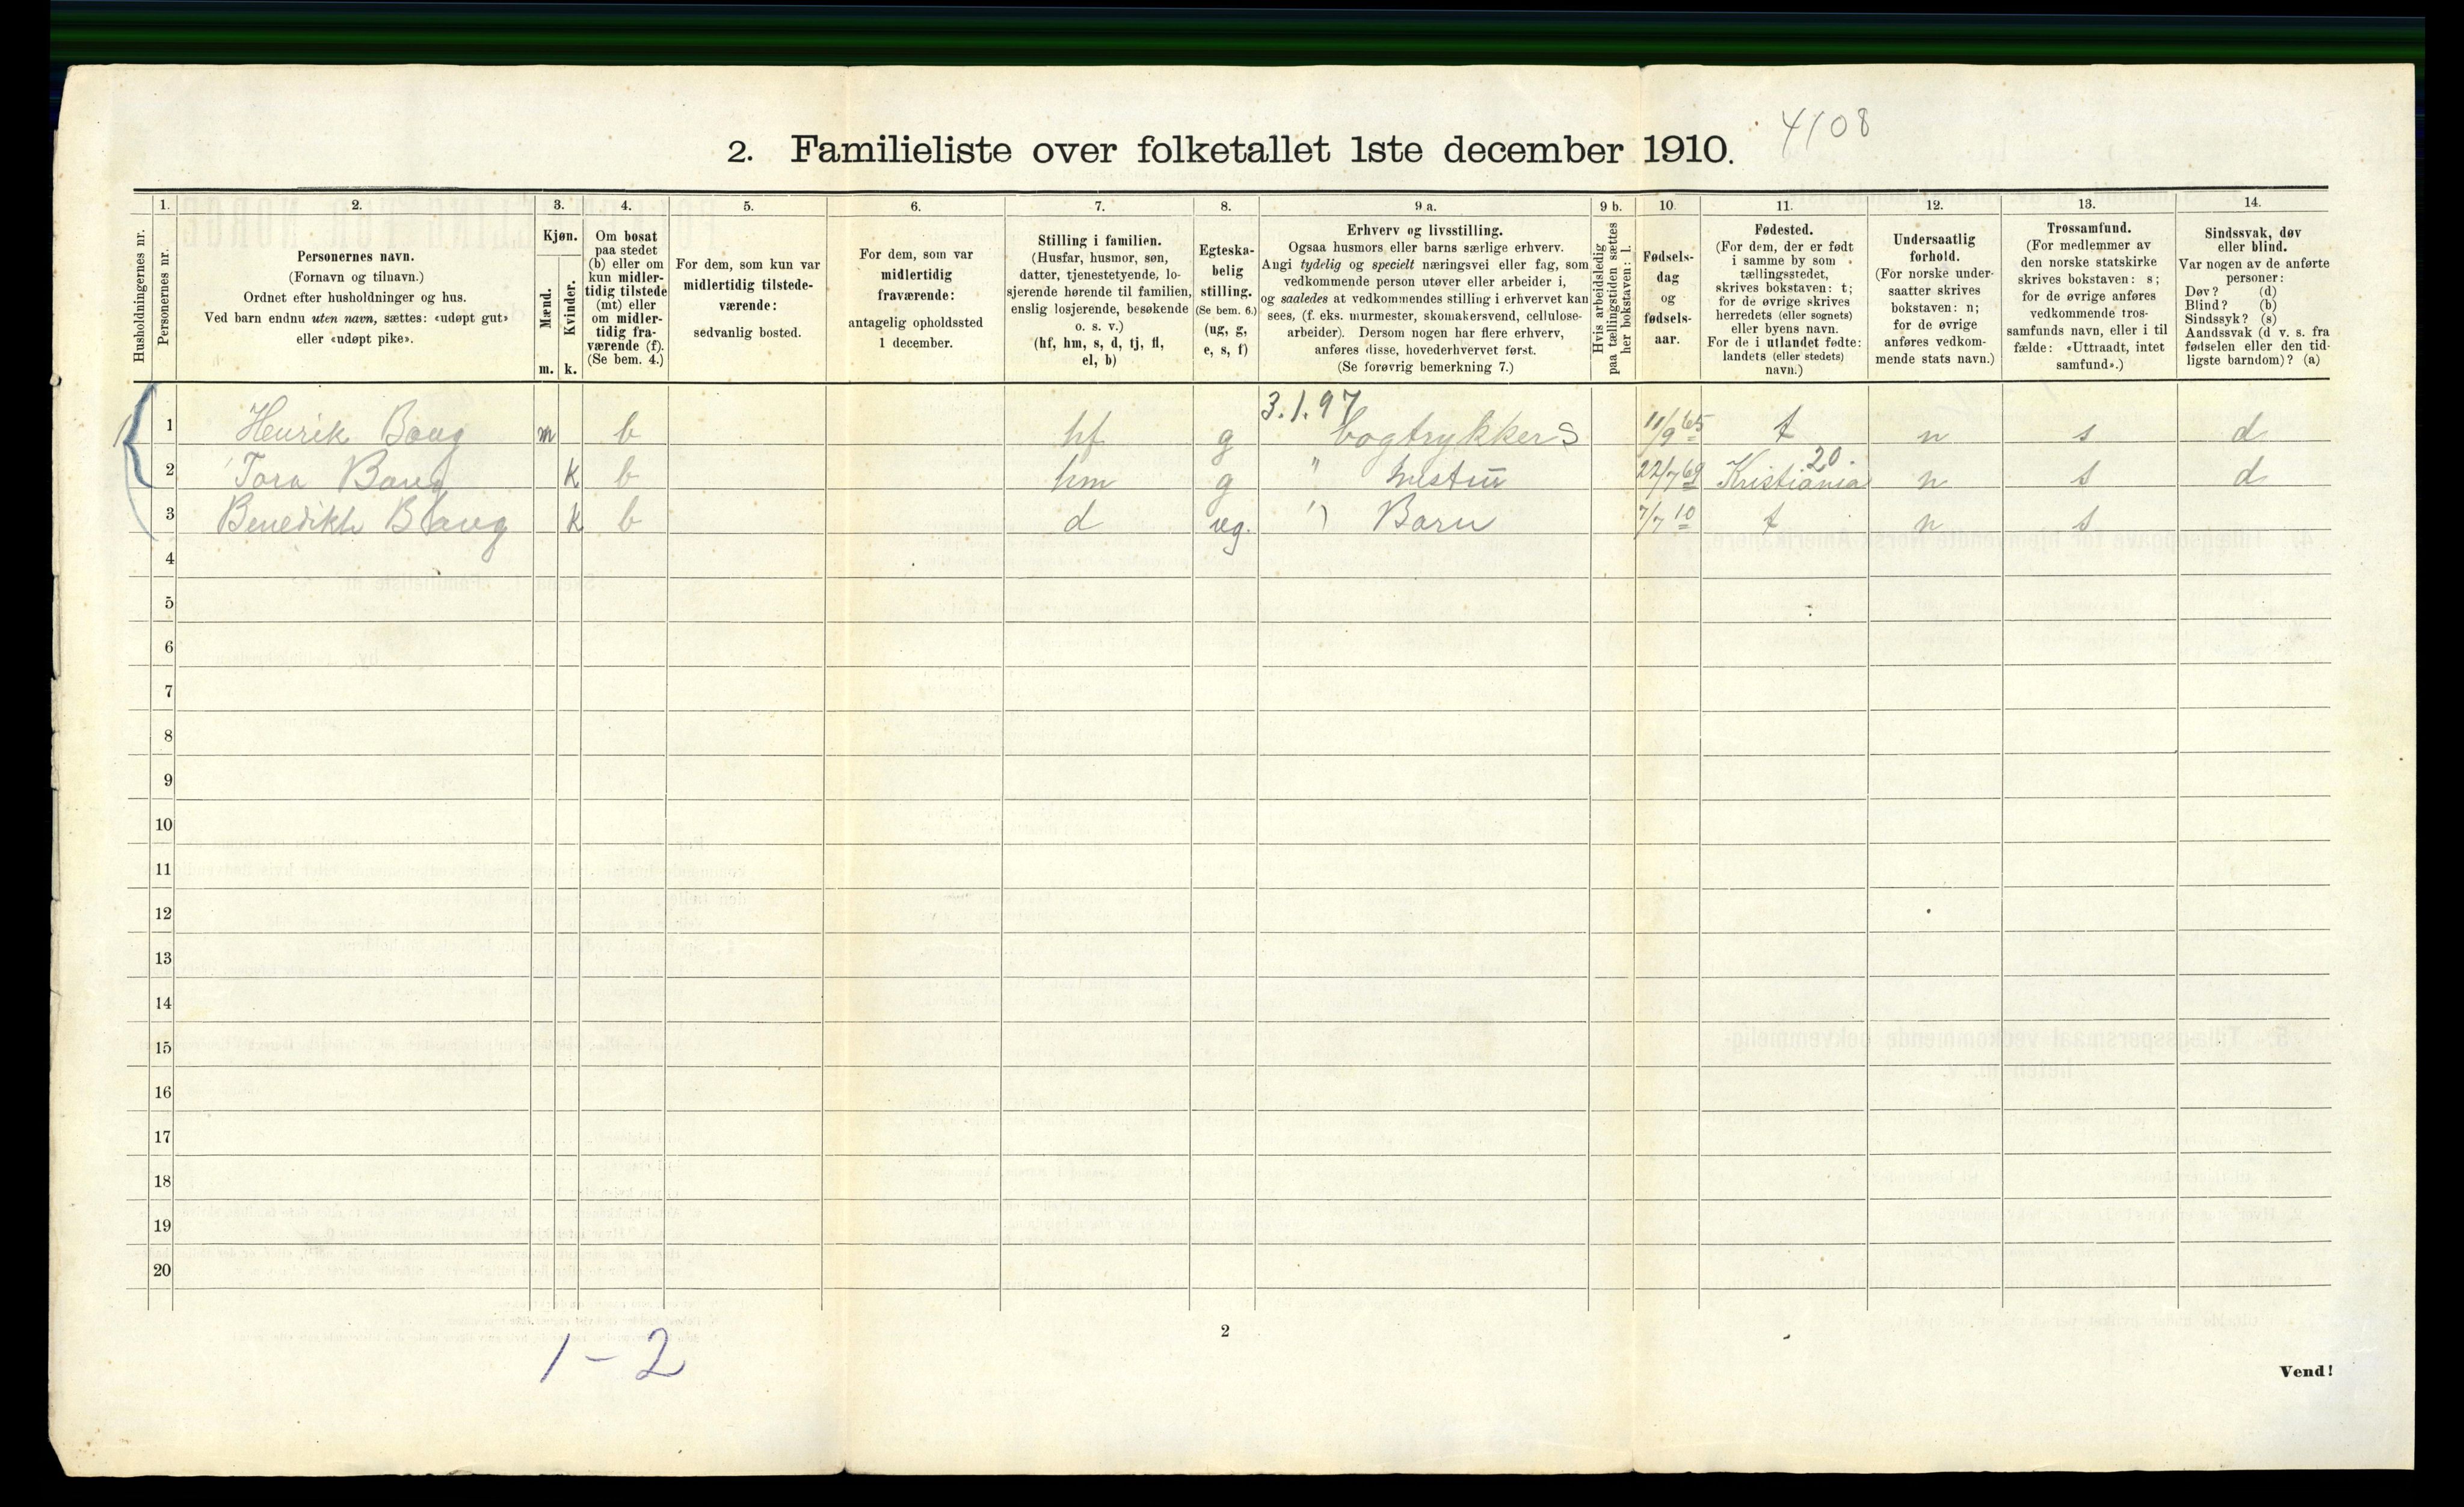 4108
2. Familieliste over folketallet 1ste december 1910.
Husholdningernes nr.
1.
Personernes nr.
2.
Personernes navn.
(Fornavn og tilnavn.)
Ordnet efter husholdninger og hus.
Ved barn endnu uten navn, sættes: «udøpt gut»
eller «udøpt pike».
3.
Kjøn.
Mænd.
Kvinder.
m. k.
4.
Om bosat
paa stedet
(b) eller om
kun midler-
tidig tilstede
(mt) eller
om midler-
tidig fra-
værende (f).
(Se bem. 4.)
5.
For dem, som kun var
midlertidig tilstede-
værende:
sedvanlig bosted.
6.
For dem, som var
midlertidig
fraværende:
antagelig opholdssted
1 december.
7.
Stilling i familien.
(Husfar, husmor, søn,
datter, tjenestetyende, lo-
sjerende hørende til familien,
enslig losjerende, besøkende
o. s. v.)
(hf, hm, s, d, tj, fl,
el, b)
8.
Egteska-
belig
stilling.
(Se bem. 6.)
(ug, g,
e, s, f)
9 a.
Erhverv og livsstilling.
Ogsaa husmors eller barns særlige erhverv.
Angi tydelig og specielt næringsvei eller fag, som
vedkommende person utøver eller arbeider i,
og saaledes at vedkommendes stilling i erhvervet kan
sees, (f. eks. murmester, skomakersvend, cellulose-
arbeider). Dersom nogen har flere erhverv,
anføres disse, hovederhvervet først.
(Se forøvrig bemerkning 7.)
9 b.
Hvis arbeidsledig
paa tællingstiden sættes
her bokstaven: l.
10.
Fødsels-
dag
og
fødsels-
aar.
11.
Fødested.
(For dem, der er født
i samme by som
tællingsstedet,
skrives bokstaven: t;
for de øvrige skrives
herredets (eller sognets)
eller byens navn.
For de i utlandet fødte:
landets (eller stedets)
navn.)
12.
Undersaatlig
forhold.
(For norske under-
saatter skrives
bokstaven: n;
for de øvrige
anføres vedkom-
mende stats navn.)
13.
Trossamfund.
(For medlemmer av
den norske statskirke
skrives bokstaven: s;
for de øvrige anføres
vedkommende tros-
samfunds navn, eller i til
fælde: «Uttraadt, intet
samfund».)
14.
Sindssvak, døv
eller blind.
Var nogen av de anførte
personer:
Døv? (d)
Blind? (b)
Sindssyk? (s)
Aandssvak (d v. s. fra
fødselen eller den tid-
ligste barndom)? (a)
3.1.97
1 Henrik Boug m b hf g bogtrykkers 11/9 65 t n s d
20.
2 Tora k b hm g " 22/7 69 Kristiania n s d
3 k b d ug. " Barn 7/7 10 t n s
4
5
6
7
8
9
10
11
12
13
14
15
16
17
18
19
20
1-2
2
Vend!